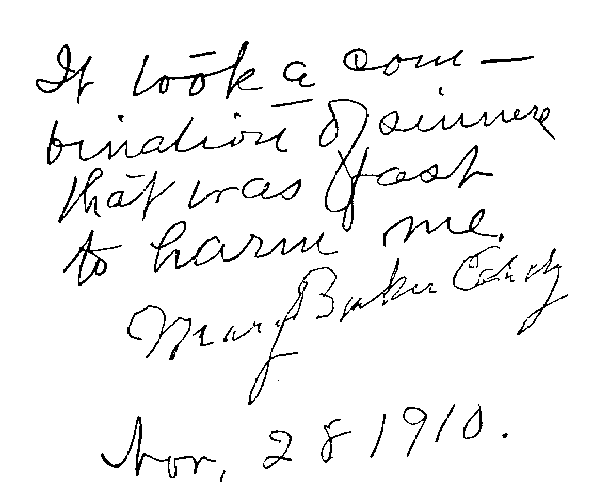 It took a com—
bination of sinners
that was fast
to harm me.
Mary Baker Eddy
Nov. 28 1910.